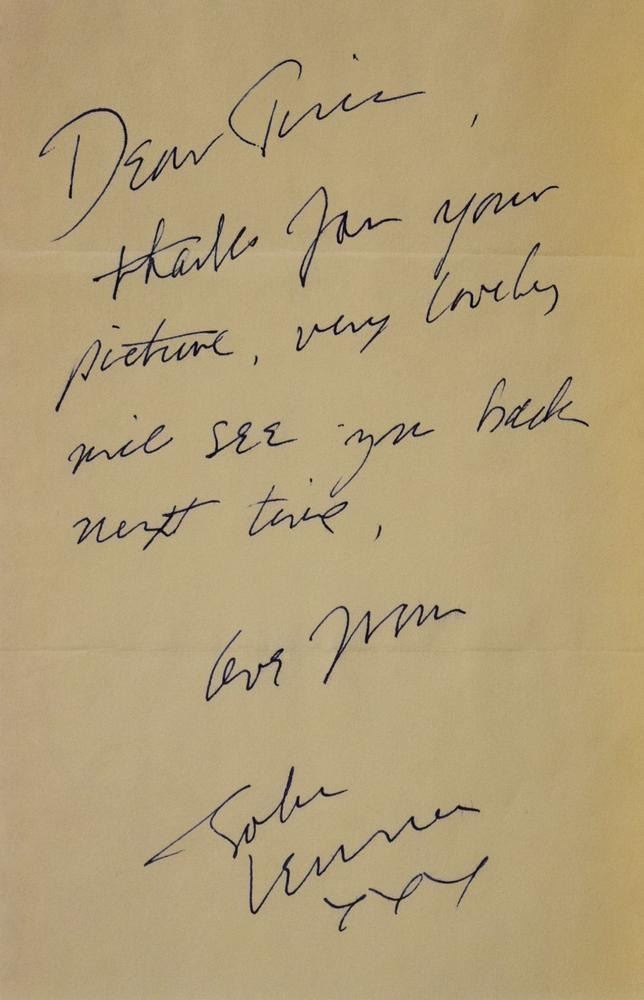 Dear Tiric,
thanks for your
picture, very lovely
will see you back
next time,
love from
John
Lennon
xxx